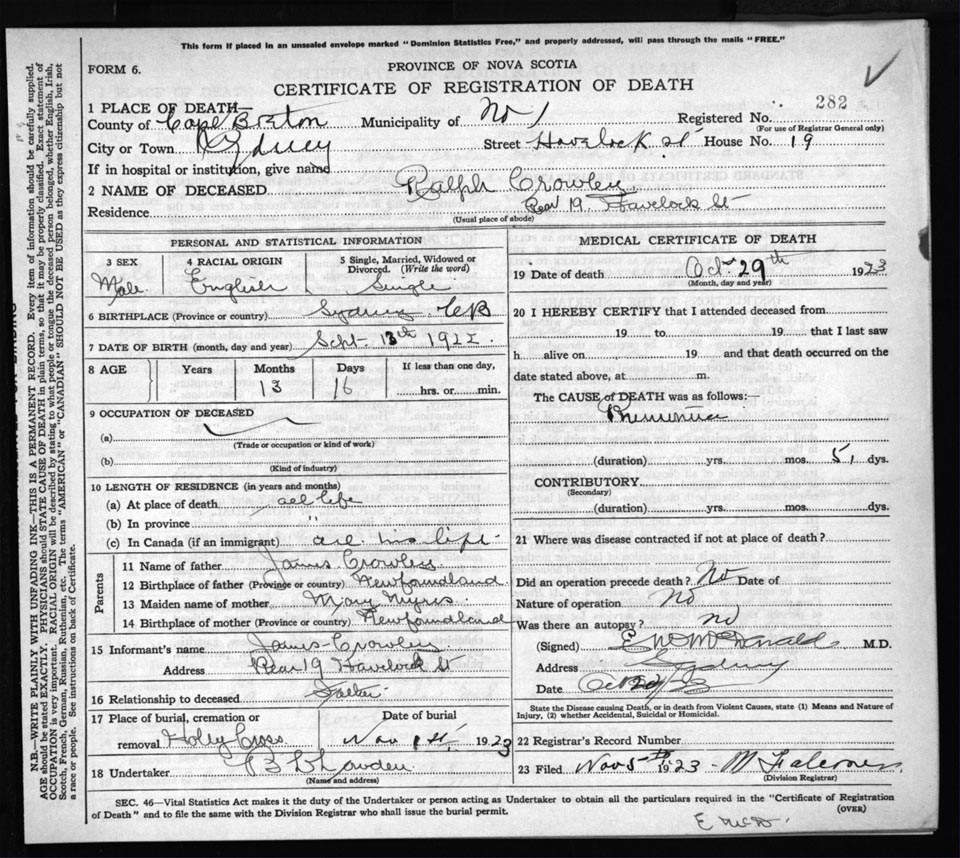 This form if placed in an unsealed envelope marked "Dominion Statistics Free," and properly addressed, will pass through the mails "FREE."
FORM 6.
PROVINCE OF NOVA SCOTIA
CERTIFICATE OF REGISTRATION OF DEATH
282
1 PLACE OF DEATH—
County of Cape Breton Municipality of No 1 Registered No.
(For use of Registrar General only)
City or Town Sydney Street Havelock St House No. 19
If in hospital or institution, give name
2 NAME OF DECEASED Ralph Crowley
Residence Rear 19 Havelock St
(Usual place of abode)
PERSONAL AND STATISTICAL INFORMATION
3 SEX 4 RACIAL ORIGIN 5 Single, Married, Widowed or Divorced. (Write the word)
Male English Single
6 BIRTHPLACE (Province or country) Sydney CB
7 DATE OF BIRTH (month, day and year) Sept 13th 1922
8 AGE Years Months Days If less than one day,
13 16 hrs. or min.
9 OCCUPATION OF DECEASED
(a)
(Trade or occupation or kind of work)
(b)
(Kind of industry)
10 LENGTH OF RESIDENCE (in years and months)
(a) At place of death all life
(b) In province "
(c) In Canada (if an immigrant) all his life
Parents
11 Name of father James Crowley
12 Birthplace of father (Province or country) Newfoundland
13 Maiden name of mother Mary
14 Birthplace of mother (Province or country) Newfoundland
15 Informant's name James Crowley
Address Rear 19 Havelock St
16 Relationship to deceased Father
17 Place of burial, cremation or Date of burial
removal Holy Cross Nov 1st 1923
18 Undertaker
(Name and address)
MEDICAL CERTIFICATE OF DEATH
19 Date of death Oct 29th 1923
(Month, day and year)
20 I HEREBY CERTIFY that I attended deceased from
19 to 19 that I last saw
h alive on 19 and that death occurred on the
date stated above, at m.
The CAUSE of DEATH was as follows:—
Pneumonia
(duration) yrs. mos. 5 dys.
CONTRIBUTORY
(Secondary)
(duration) yrs. mos. dys.
21 Where was disease contracted if not at place of death?
Did an operation precede death? No Date of
Nature of operation No
Was there an autopsy? no
(Signed) McDonald M.D.
Address Sydney
Date Oct /23
State the Disease causing Death, or in death from Violent Causes, state (1) Means and Nature of
Injury, (2) whether Accidental, Suicidal or Homicidal.
22 Registrar's Record Number
23 Filed Nov 5th 1923
(Division Registrar)
SEC. 46—Vital Statistics Act makes it the duty of the Undertaker or person acting as Undertaker to obtain all the particulars required in the "Certificate of Registration
of Death" and to file the same with the Division Registrar who shall issue the burial permit.
(OVER)
N.B.—WRITE PLAINLY, WITH UNFADING INK—THIS IS A PERMANENT RECORD. Every item of information should be carefully supplied.
AGE should be stated EXACTLY. PHYSICIANS should STATE CAUSE OF DEATH in plain terms, so that it may be properly classified. Exact statement of
OCCUPATION is very important. RACIAL ORIGIN will be described by stating to what people or tongue the deceased person belonged, whether English, Irish,
Scotch, French, German, Russian, Ruthenian, etc. The terms "AMERICAN" or "CANADIAN" SHOULD NOT BE USED as they express citizenship but not
a race or people. See instructions on back of Certificate.